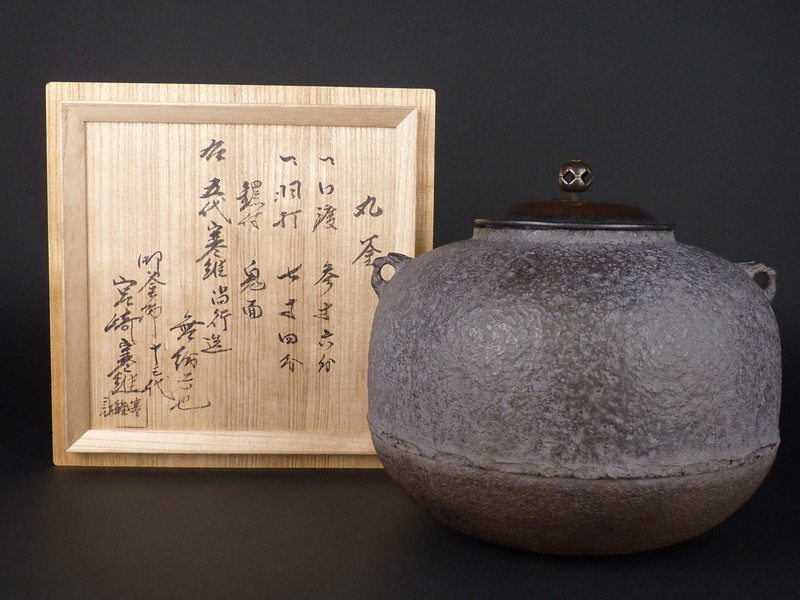 丸釜
一口渡 参寸六分
一胴打 七寸四分
鐶付 鬼面
右 五代寒雉尚行造
無紛者也
御釜師 十三代
宮崎寒雉